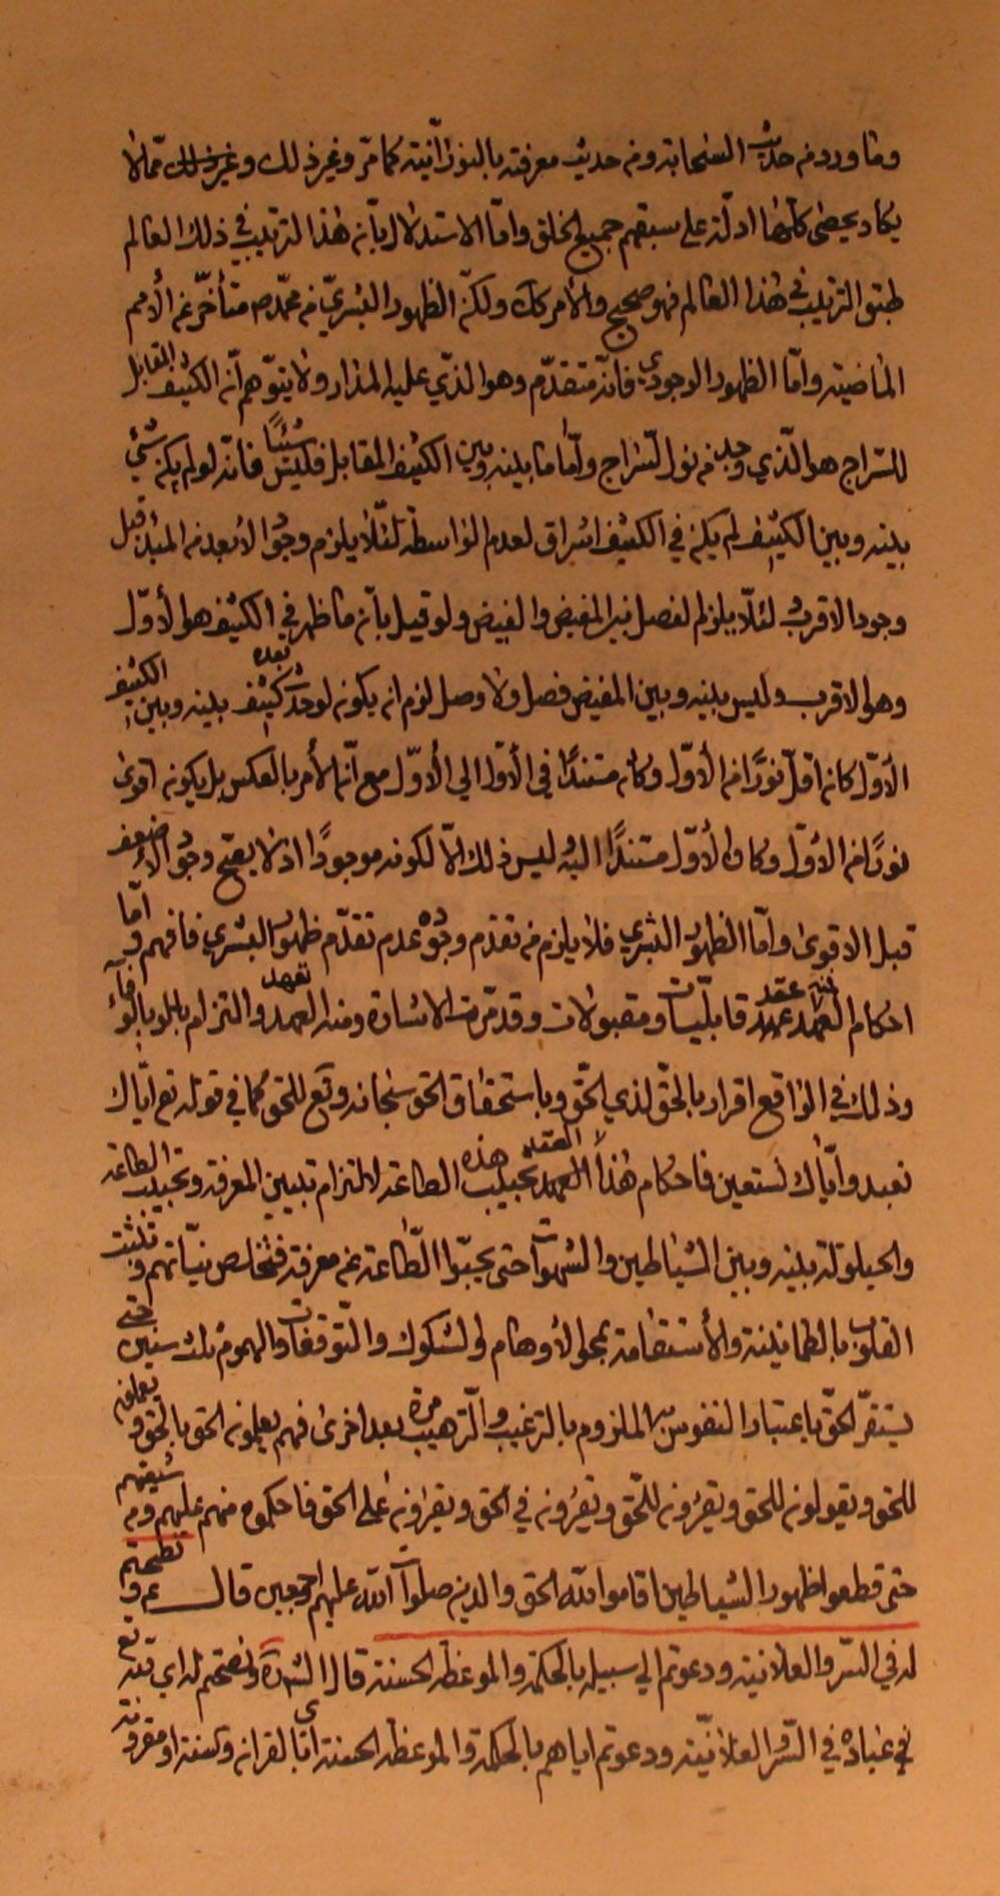 وما ورد من حديث السحابة ومن حديث معرفته بالنورانيّة كما مرّ وغير ذلك وغير ذلك ممّا لا
يكاد يحصى كلّها ادلّة على سبقهم جميع الخلق وامّا الاستدلال بانّ هذا الترتيب في ذلك العالم
طبق الترتيب في هذا العالم فهو صحيح والامر كك ولكنّ الظهور البشريّ من محمّد ص متأخّر عن الأمم
الماضية وامّا الظهور الوجودي فانّه متقدّم وهو الذّي عليه المدار ولا يتوّهم انّ الكثيف المقابل
للسّراج هو الّذي وجد من نور السّراج وامّا ما بينه وبين الكثيف المقابل فليس شيئًا فانّه لو لم يكن شئ
بينه وبين الكثيف لم يكن في الكثيف اشراق لعدم الواسطة لئلّا يلزم وجود الابعد من المبدء قبل
وجود الاقرب لئلّا يلزم الفصل بين المفيض والفيض ولو قيل بانّ ما ظهر في الكثيف هو الأوّل
وهو الاقرب وليس بينه وبين المفيض فصل ولا وصل لزم ان يكون لو حدث بعده كثيف بينه وبين الكثيف
الأوّل كان اقلّ نورًا من الأوّل وكان مستندًا في الأوّل الي الأوّل مع انّ الأمر بالعكس بل يكون اقوى
نورًا من الاوّل وكان الأوّل مستندًا اليه ليس ذلك الّا لكونه موجودًا اذ لا يصحّ وجود الاضعف
قبل الاقوى وامّا الظهور البشري فلا يلزم من تقدّم وجوده عدم تقدّم ظهور البشري فافهم وامّا
احكام العهد عقد قابليّات ومقبولات وقد مرّت الاشارة ومنه العهد تعهد والتزام بالوفاء
وذلك في الواقع اقرار بالحقّ لذي الحقّ وباستحقاق الحق سبحانه وتع للحق كما في قوله تع ايّاك
نعبد وايّاك نستعين فاحكام هذا العهد العقد تحبيب هذه الطاعة لالتزام تبيين المعرفة وتحبيب الطاعة
والحيلولة بينه وبين الشياطين والشهوات حتى يحبّوا الطّاعة عن معرفة فتخلص نيّاتهم وتثبت
القلوب بالطمانينة والأستقامة بمحو الأوهام والشكوك والتّوقفات والهموم تلك سنين حتى
يستقرّ الحقّ باعتبار النفوس الملزوم بالترغيب والتّرهيب مرة بعد اخرى فهم يعلمون الحق بالحق ويعملون
للحق ويقولون للحق ويقرّون للحّق ويقرّون في الحق ويقرّون على الحق فاحكموه منهم عليهم ومن شيعتهم
حتى قطعوا ظهور الشياطين اقاموا لله الحق والدين صلوات الله عليهم اجمعين قال ع ونصحتم
له في السّر والعلانية ودعوتم الي سبيله بالحكمة والموعظة الحسنة قال الشارح ونصحتم له اي تع
في عباده في السّر والعلانيّة ودعوتم اياهم بالحكمة والموعظة الحسنة اي بالقران والسنة او مقرونة